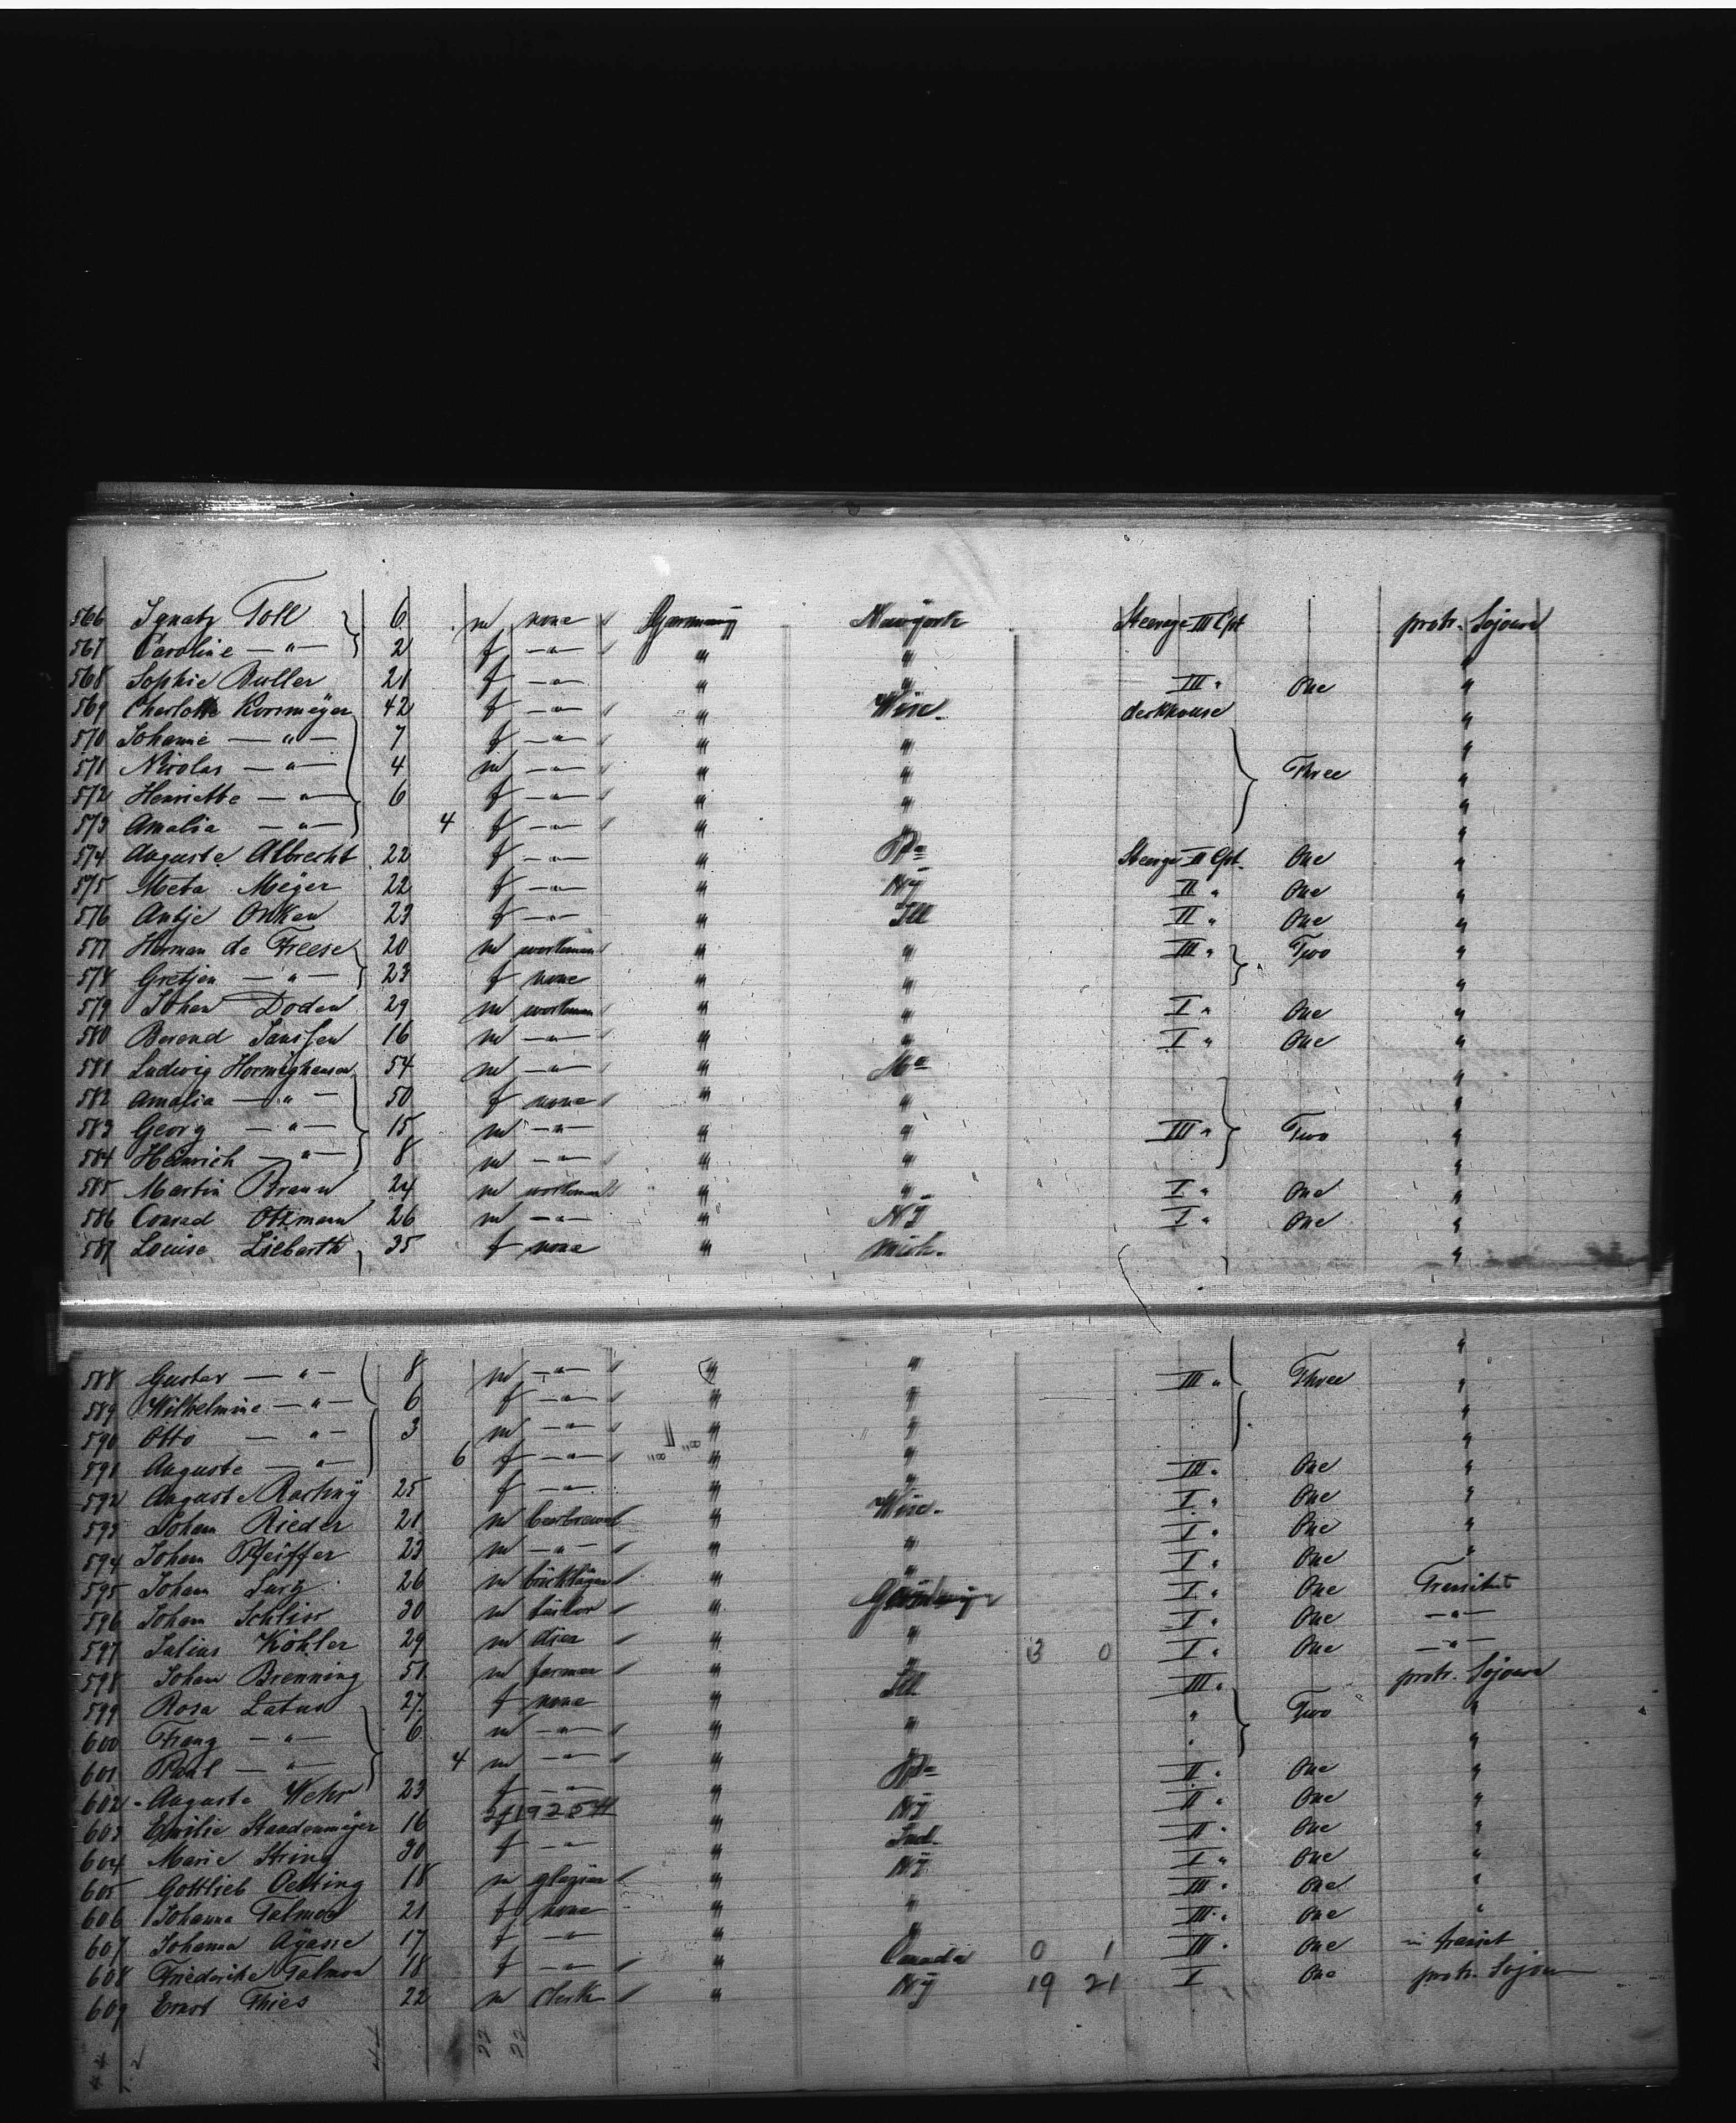 566 Ignatz Toll 6 m none Germany Newyork Steerage III Cpt protr. Sojourn
567 Caroline — " — 2 f — " — " " "
568 Sophie Buller 21 f — " — " " III " One "
569 Charlotte Korsmeyer 42 f — " — " Wisc. deckhouse "
570 Johanne — " — 7 f — " — " " "
571 Nicolas — " — 4 m — " — " " Three "
572 Henriette — " — 6 f — " — " " "
573 Amalia — " — 4 f — " — " " "
574 Auguste Albrecht 22 f — " — " Pa Steerage II Cpt. One "
575 Meta Meyer 22 f — " — " NY II " One "
576 Antje Onken 23 f — " — " Ill II " One "
577 Herman de Freese 20 m workman " " III " Two "
578 Gretjen — " — 23 f none " " "
579 Johan Doden 29 m workman " " I " One "
580 Berend Janssen 16 m — " — " " I " One "
581 Ludwig Hornighausen 54 m — " — " "
582 Amalia — " — 50 f none " " "
583 Georg — " — 15 m — " — " " III " Two "
584 Heinrich — " — 8 m — " — " " "
585 Martin Braun 24 m workman " " I " One "
586 Conrad Ottmann 26 m — " — " NY I " One "
587 Louise Liebarth 35 f none " Mich. "
588 Gustav — " — 8 m — " — " " III " Three "
589 Wilhelmine — " — 6 f — " — " " "
590 Otto — " — 3 m — " — " " "
591 Auguste — " — 6 f — " — " " "
592 Auguste 25 f — " — " " III " One "
593 Johann Rieder 21 m " Wisc. I " One "
594 Johann Pfeiffer 23 m — " — " " I " One "
595 Johann 26 m " " I " One "
596 Johann Schliss 30 m tailor " Germany I " One Transitus
597 Julius Köhler 29 m " " I " One — " —
598 Johan Brenning 51 m farmer " " 3 0 I " One — " —
599 Rosa Latus 27 f none " Ill III " Two protr. Sojourn
600 Franz — " — 6 m — " — " " " "
601 Paul — " — 4 m — " — " " " "
602 Auguste Wehr 23 f — " — " Pa II " One "
603 Emilie Staadenmeyer 16 f " NY II " One "
604 Marie String 30 f — " — " Ind. II " One "
605 Gottlieb Oelking 18 m glazier " NY I " One "
606 Johanna Talmon 21 f none " " III " One "
607 Johanna Ayasse 17 f — " — " " III " One "
608 Friederike Talmon 18 f — " — " Canada 0 1 III " One in transit
609 Ernst Thies 22 m clerk " NY 19 21 I One protr. Sojourn
22 22